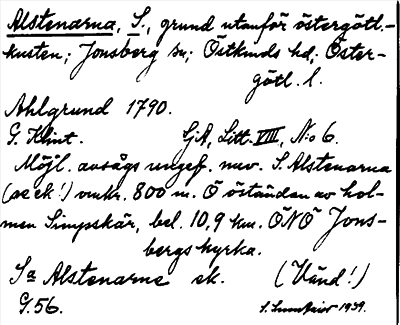 Alstenarna, S., grund utanför östergötl.-
kusten; Jonsberg sn; Östkinds hd; Öster-
götl. l.
Ahlgrund 1790.
G. Klint. SjA, Litt. VIII, N:o 6.
Möjl. avsågs ungef. nuv. S. Alstenarna
(se ek!) omkr. 800 m. Ö östandan av hol-
men Limpskär, bel. 10,9 km. ÖNÖ Jons-
bergs kyrka.
Sa Alstenarne ek. (Vänd!)
G. 56. 1939.